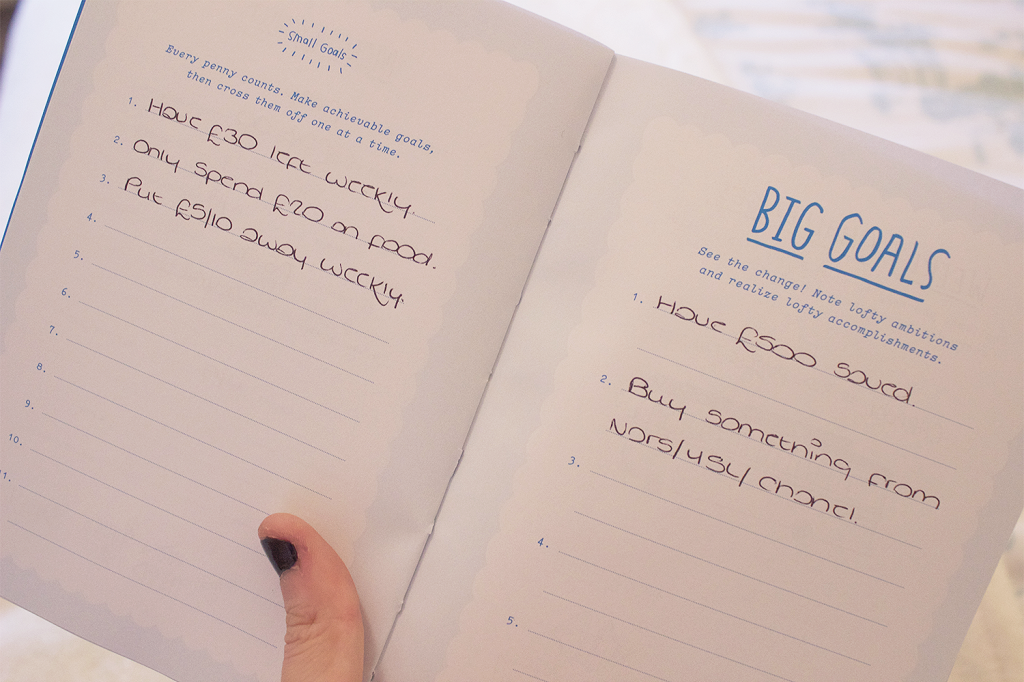 Small Goals
Every penny counts. Make achievable goals,
then cross them off one at a time.
1. Have £30 left weekly.
2. Only spend £20 on food.
3. Put £5/10 away weekly.
4.
5.
6.
7.
8.
9.
10.
11.
BIG GOALS
See the change! Note lofty ambitions
and realize lofty accomplishments.
1. Have £500 saved.
2. Buy something from
Nars/YSL/Chanel.
3.
4.
5.